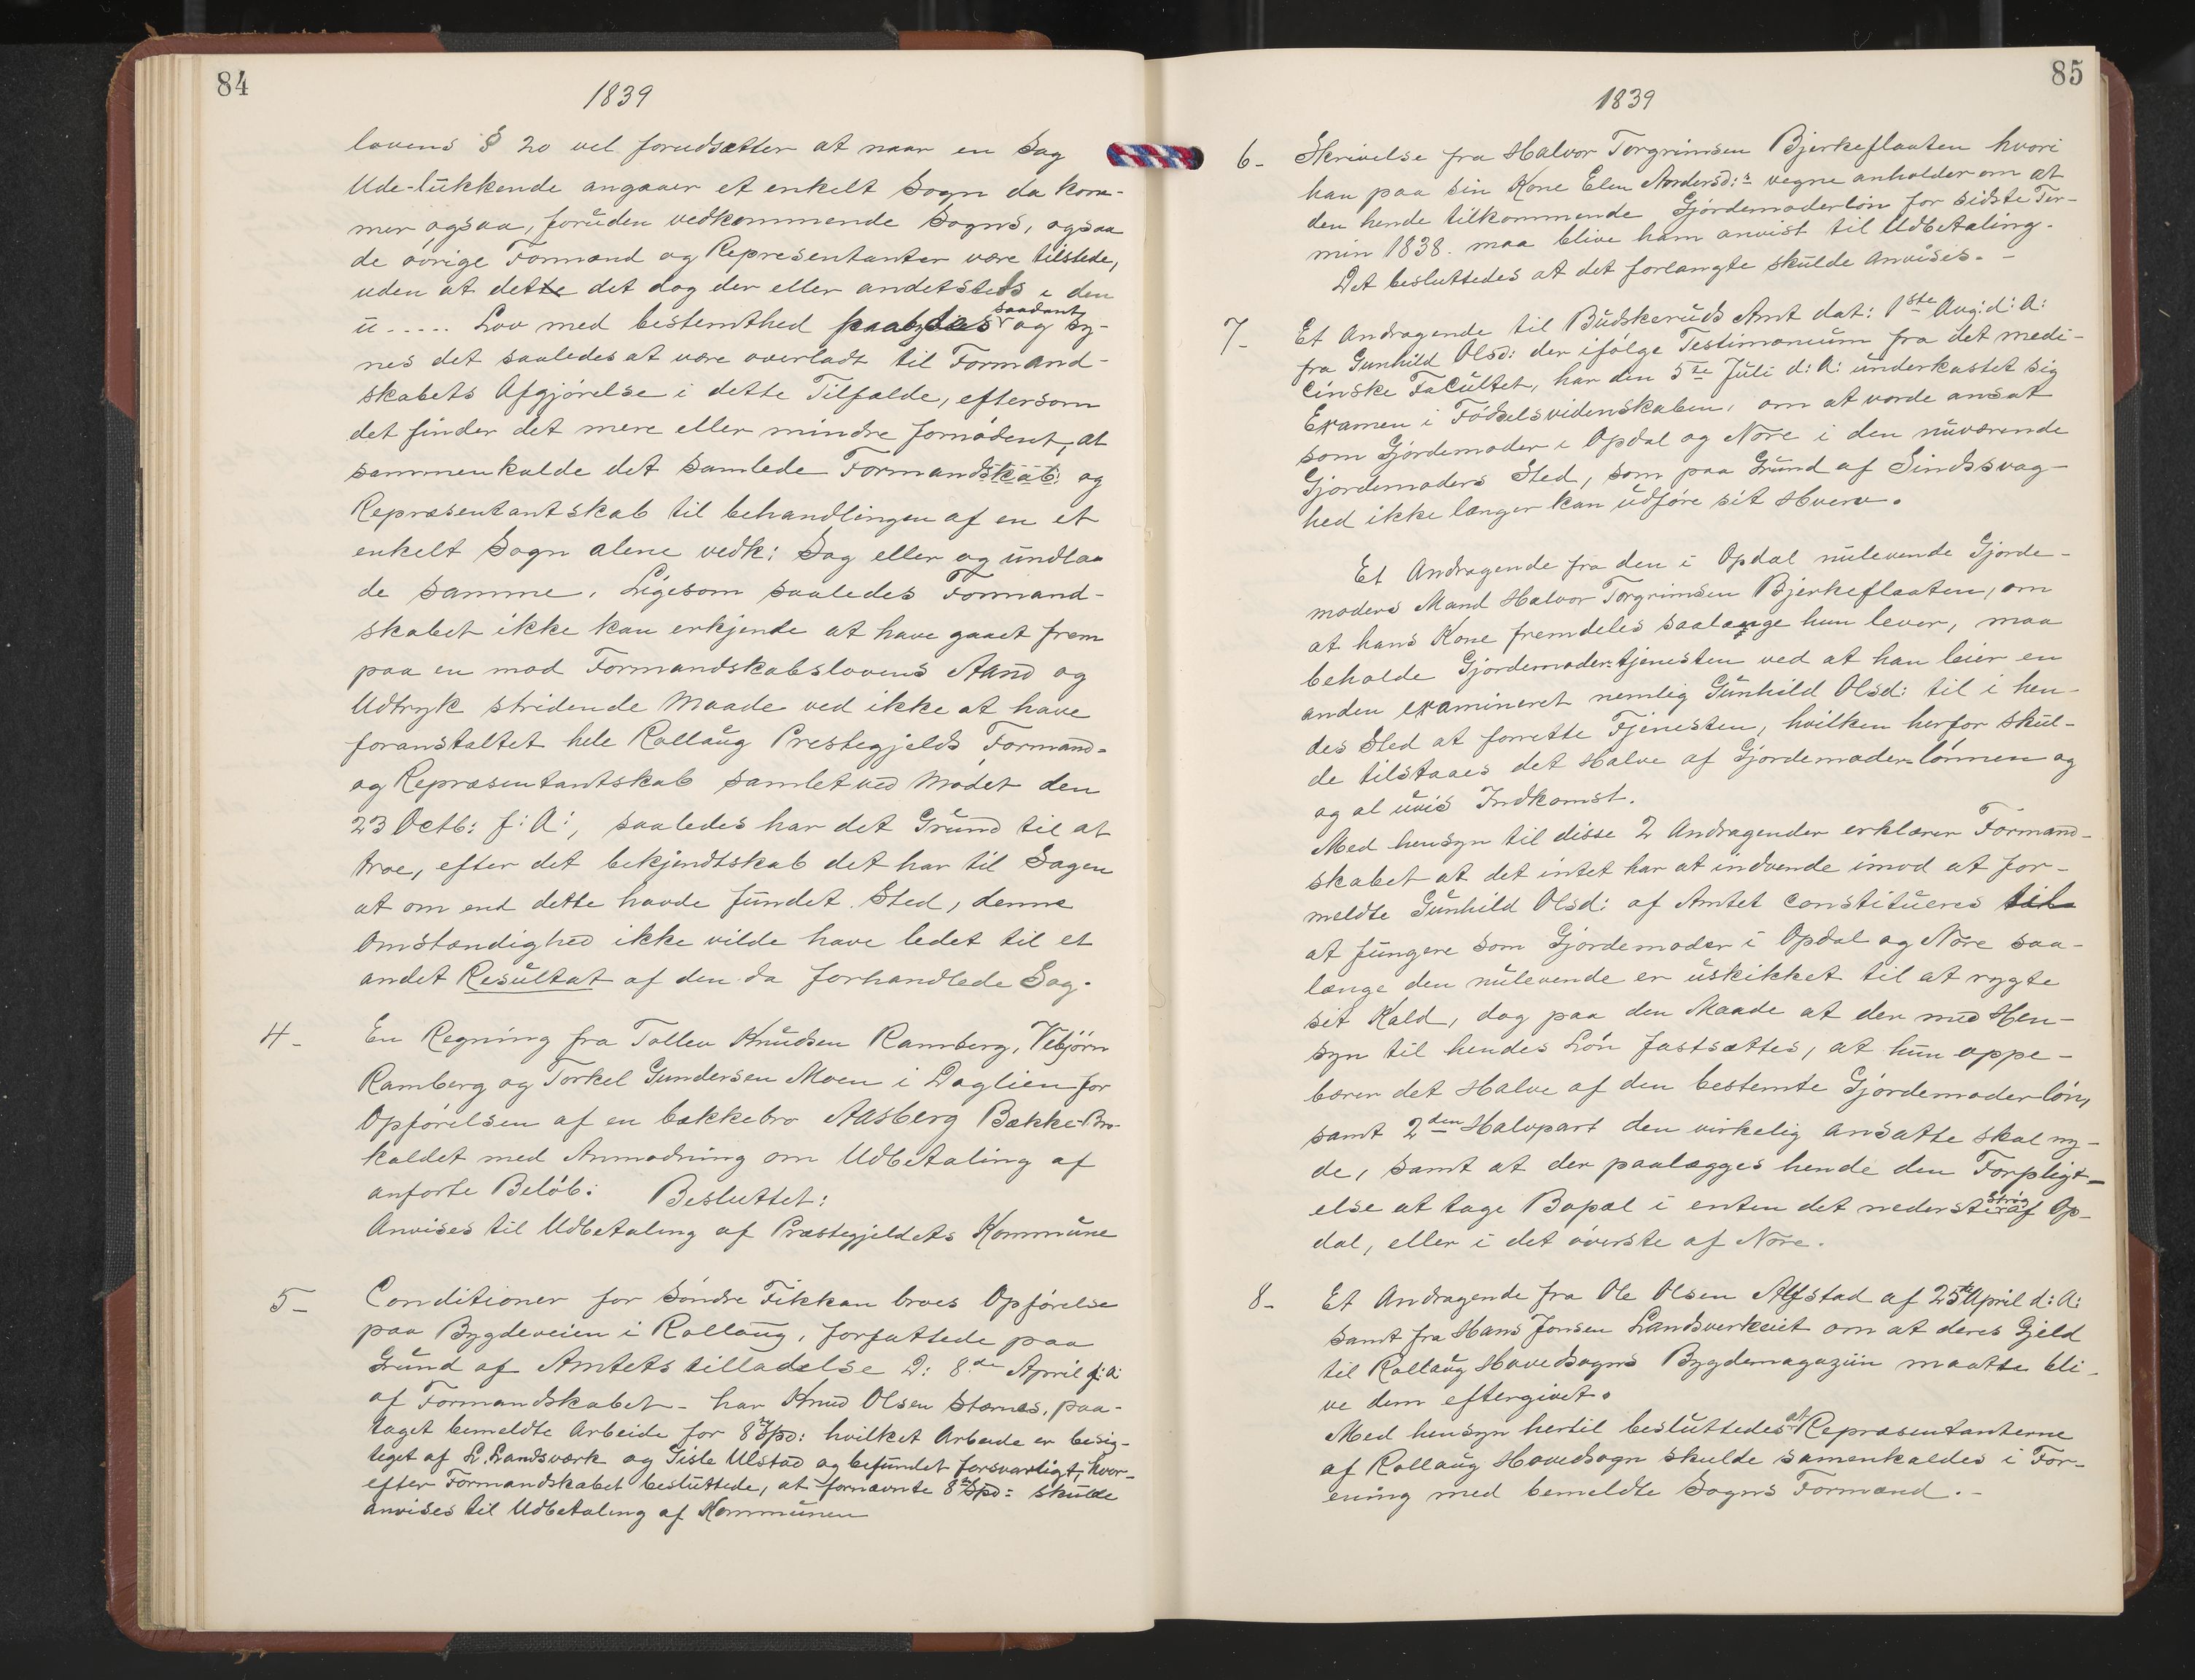 84
1839
lovens § 20 vel forudsætter at naar en Sag
Ude-lukkende angaaer et enkelt Sogn da kom-
mer ogsaa, foruden vedkommende Sogns, ogsaa
de øvrige Formænd og Representanter være tilstede,
uden at dette det dog der eller andetsteds i den
u..... Lov med bestemthed paabydes saadant og sy-
nes det saaledes at være overladt til Formand-
skabets Afgjørelse i dette Tilfælde, eftersom
det finder det mere eller mindre fornødent, at
sammenkalde det samlede Formandskab: og
Repræsentantskab til behandlingen af en et
enkelt Sogn alene vedk: Sag eller og undla
de samme. Ligesom saaledes Formand-
skabet ikke kan erkjende at have gaaet frem
paa en mod Formandskabslovens Aand og
Udtryk stridende Maade ved ikke at have
foranstaltet hele Rollaug Prestegjelds Formand-
og Repræsentantskab samlet ved Mødet den
23 Octb: f: A:, saaledes har det Grund til at
troe, efter det bekjendtskab det har til Sagen
at om end dette havde fundet Sted, denne
Omstændighed ikke vilde have ledet til et
andet Resultat af den da forhandlede Sag.
4- En Regning fra Tollev Knudsen Ramberg, Vebjørn
Ramberg og Torkel Gundersen Moen i Daglien for
Opførelsen af en bækkebro Aasberg Bække-Bro
kaldet med Anmodning om Udbetaling af
anførte Beløb: Besluttet:
Anvises til Udbetaling af Præstegjeldets Kommune
5- Conditioner for Søndre Fikkan broes Opførelse
paa Bygdeveien i Rollaug, forfattede paa
Grund af Amtets tilladelse D: 8de April f: A:
af Formandskabet - har Knud Olsen Stærnes, paa-
taget bemeldte Arbeide for 8 Spd: hvilket Arbeide er besig-
teget af L. Landsværk og Gisle Ulstad og befundet forsvarligt, hvor-
efter Formandskabet besluttede, at fornævnte 8 Spd: skulde
anvises til Udbetaling af Kommunen
85
1839
6- Skrivelse fra Halvor Torgrimsen Bjerkeflaaten hvori
han paa sin Kone Elen Nordersd:s vegne anholder om at
den hende tilkommende Gjordemoderløn for sidste Ter-
min 1838. maa blive ham anvist til Udbetaling.
Det besluttedes at det forlangte skulde anvises. -
7- Et Andragende til Buskeruds Amt dat: 1ste Aug: d: A:
fra Gunhild Olsd: der ifølge Testimonium fra det medi-
cinske Facultet, har den 5te Juli d: A: underkastet sig
Examen i Fødselsvidenskaben, om at vorde ansat
som Gjordemoder i Opdal og Nore i den nuværende
Gjordemoders Sted, som paa Grund af Sindssvag-
hed ikke længer kan udføre sit Hverv.
Et Andragende fra den i Opdal nulevende Gjorde-
moders Mand Halvor Torgrimsen Bjerkeflaaten, om
at hans Kone fremdeles saalænge hun lever, maa
beholde Gjordemoder-tjenesten ved at han leier en
anden examineret nemlig Gunhild Olsd: til i hen-
des Sted at forrette Tjenesten, hvilken herfor skul-
de tilstaaes det Halve af Gjordemoder-lønnen og
og al uvis Indkomst.
Med hensyn til disse 2 Andragender erklærer Formand-
skabet at det intet har at indvende imod at for-
meldte Gunhild Olsd: af Amtet constitueres til
at fungere som Gjordemoder i Opdal og Nore saa-
længe den nulevende er uskikket til at rygte
sit Kald, dog paa den Maade at der med Hen-
syn til hendes Løn fastsættes, at hun oppe-
bærer det Halve af den bestemte Gjordemoderløn,
samt 2den Halvpart den virkelig ansatte skal ny-
de, samt at der paalægges hende den Forpligt-
else at tage Bopæl i enten det nederste Strøg af Op-
dal, eller i det øverste af Nore.
8- Et Andragende fra Ole Olsen Alfstad af 25de April d: A:
samt fra Hans Jonsen Landsverkeiet om at deres Gjeld
til Rollaug Hovedsogns Bygdemagaziin maatte bli-
ve dem eftergivet.
Med hensyn hertil besluttedes at Repræsentanterne
af Rollaug Hovedsogn skulde samenkaldes i For-
ening med bemeldte Sogns Formænd. -